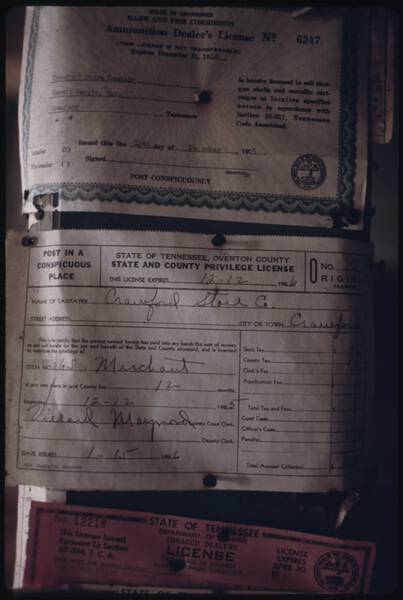 STATE OF TENNESSEE
GAME AND FISH COMMISSION
Ammunition Dealer's License No 6247
(THIS LICENSE IS NOT TRANSFERABLE)
Expires December 31, 19
Crawford Store Company
is hereby licensed to sell shot-
gun shells and metallic cart-
ridges at location specified
hereon in accordance with
Section 51-257, Tennessee
Code Annotated.
Crawford Tennessee
Issued this the day of December 196
Signed
Director
POST CONSPICUOUSLY
POST IN A
CONSPICUOUS
PLACE
STATE OF TENNESSEE, OVERTON COUNTY
STATE AND COUNTY PRIVILEGE LICENSE
THIS LICENSE EXPIRES 12-12 1966
No.
ORIGINAL
NAME OF TAXPAYER Crawford Store Co.
STREET ADDRESS CITY OR TOWN Crawford
This is to certify that the person named herein has paid into my hands the sum of money
as set out herein for the use and benefit of the State and County aforesaid, and is licensed
to exercise the privilege of
ITEM NO. Merchant
at any one place in said County for 12 months
beginning 12-12 1965
Richard Maynord County Court Clerk
Deputy Clerk
DATE ISSUED 1-15 1966
State Tax
County Tax
Clerk's Fee
Application Fee
Total Tax and Fees
Court Cost
Officer's Cost
Penalty
Total Amount Collected
No 12218
This License Issued
Pursuant To Section
67-204, T. C. A.
STATE OF TENNESSEE
DEPARTMENT OF REVENUE
TOBACCO DEALERS
LICENSE
LICENSE
EXPIRES
APRIL 30,
STATE OF TENNESSEE